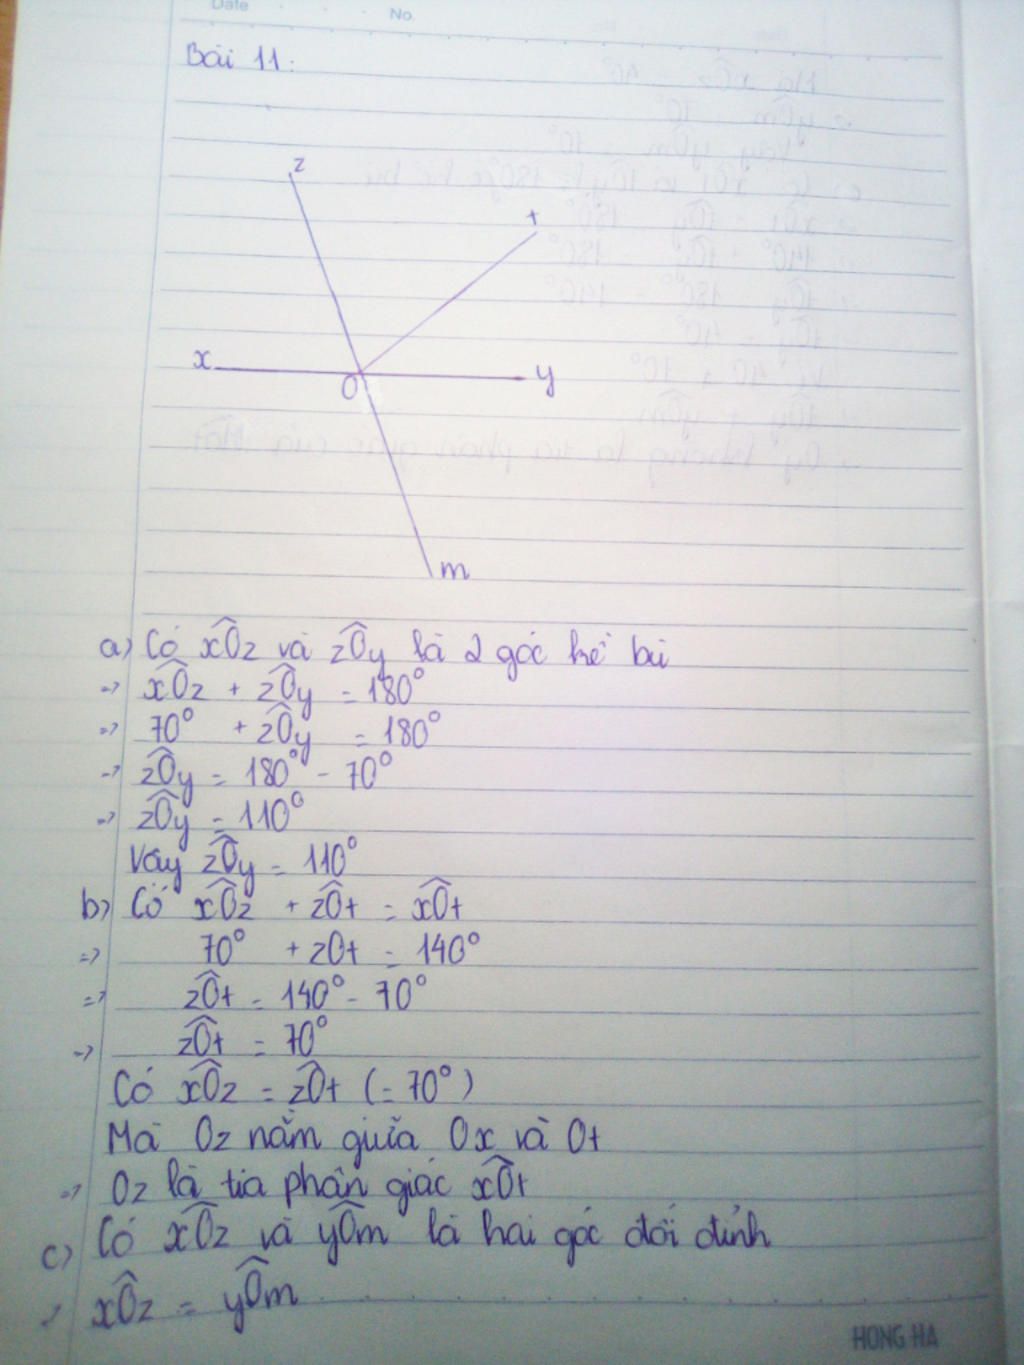 Date
No.
Bài 11:
z
t
x
O
y
m
a) Có xÔz và zÔy là 2 góc kề bù
=> xÔz + zÔy = 180°
=> 70° + zÔy = 180°
=> zÔy = 180° - 70°
=> zÔy = 110°
Vậy zÔy = 110°
b) Có xÔz + zÔt = xÔt
=> 70° + zOt = 140°
=> zÔt = 140° - 70°
=> zÔt = 70°
Có xÔz = zÔt (= 70°)
Mà Oz nằm giữa Ox và Ot
=> Oz là tia phân giác xÔt
c) Có xÔz và yÔm là hai góc đối đỉnh
=> xÔz = yÔm
HONG HA